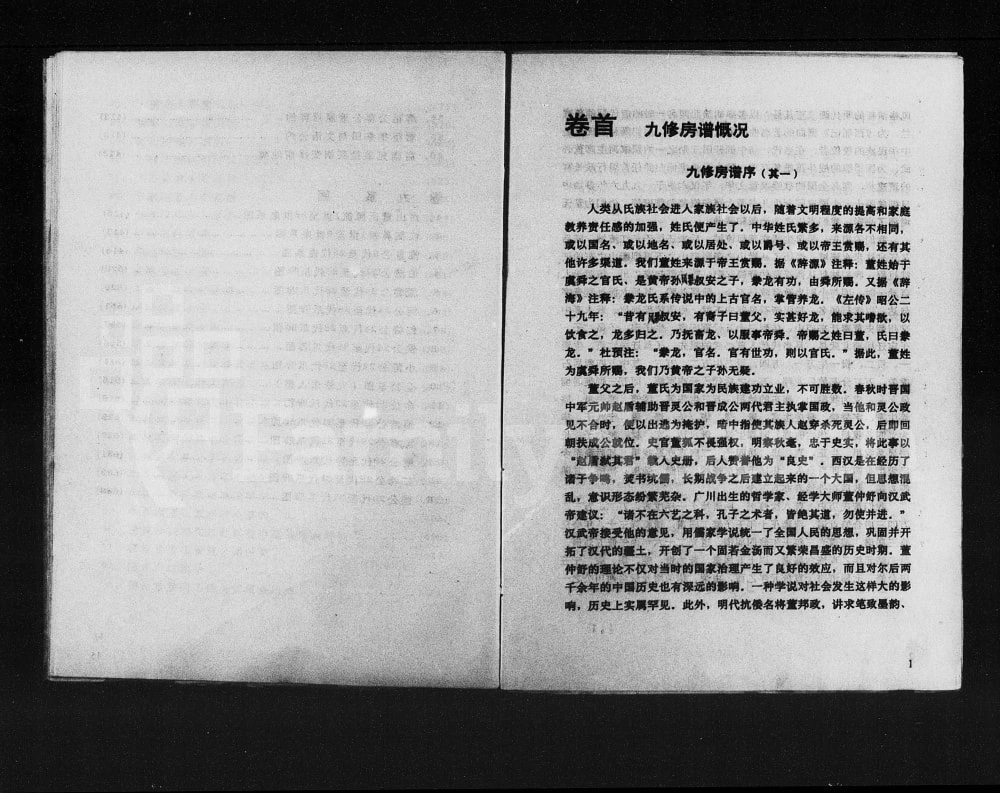 卷首 九修房谱慨况
九修房谱序（其一）
人类从氏族社会进人家族社会以后，随着文明程度的提高和家庭
教养责任感的加强，姓氏便产生了．中华姓氏繁多，来源各不相同，
或以国名、或以地名、或以居处、或以爵号、或以帝王赏赐，还有其
他许多渠道．我们董姓来源于帝王赏赐．据《辞源》注释：董姓始于
虞舜之官氏、是黄帝孙叔安之子，豢龙有功，由舜所赐．又据《辞
海》注释：豢龙氏系传说中的上古官名，掌管养龙．《左传》昭公二
十九年：“昔有叔安，有裔子曰董父，实甚好龙，能求其嗜欲，以
饮食之，龙多归之．乃抚畜龙、以服事帝舜．帝赐之姓曰董，氏曰豢
龙．”杜预注：“豢龙，官名．官有世功，则以官氏．”据此，董姓
为虞舜所赐，我们乃黄帝之子孙无疑．
董父之后，董氏为国家为民族建功立业，不可胜数．春秋时晋国
中军元帅赵盾辅助晋灵公和晋成公两代君主执掌国政，当他和灵公政
见不合时，便以出逃为掩护，暗中指使其族人赵穿杀死灵公，后即回
朝扶成公就位．史官董狐不畏强权，明察秋毫，忠于史实，将此事以
“赵盾弑其君”载入史册，后人赞誉他为“良史”．西汉是在经历了
诸子争鸣，焚书坑儒，长期战争之后建立起来的一个大国，但思想混
乱，意识形态纷繁芜杂．广川出生的哲学家、经学大师董仲舒向汉武
帝建议：“诸不在六艺之科，孔子之术者，皆绝其道，勿使并进．”
汉武帝接受他的意见，用儒家学说统一了全国人民的思想，巩固并开
拓了汉代的疆土，开创了一个固若金汤而又繁荣昌盛的历史时期．董
仲舒的理论不仅对当时的国家治理产生了良好的效应，而且对尔后两
千余年的中国历史也有深远的影响．一种学说对社会发生这样大的影
响，历史上实属罕见．此外，明代抗倭名将董邦政，讲求笔致墨韵、
1